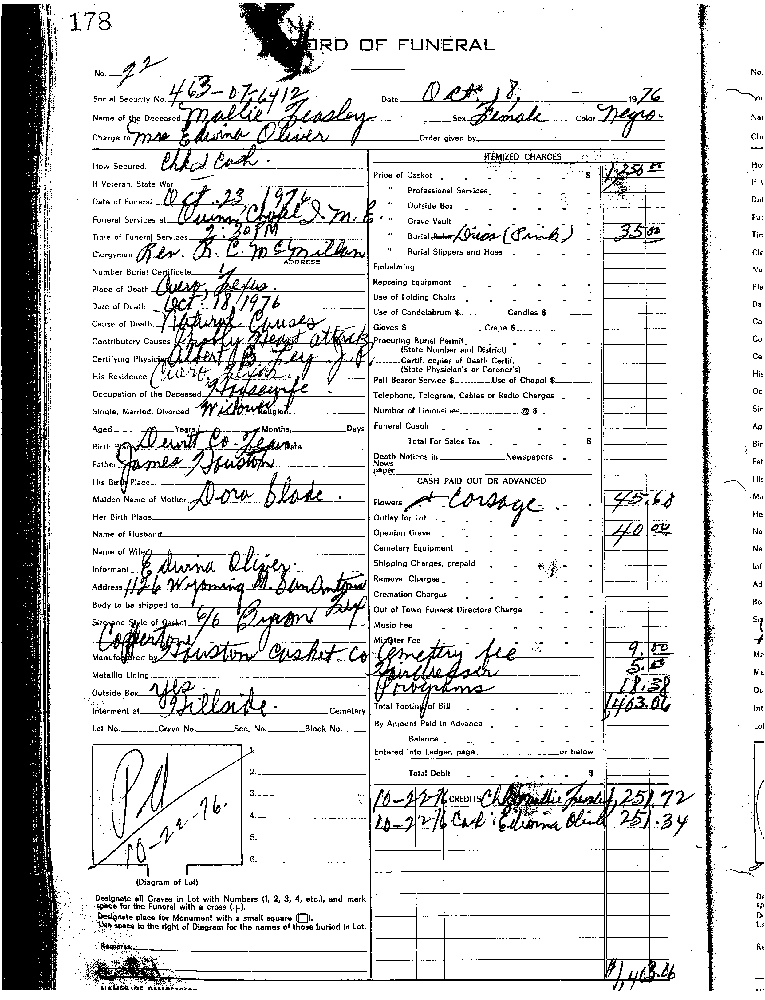 178
RECORD OF FUNERAL
No. 22
Social Security No. 463-07-6412 Date Oct 18, 1976
Name of the Deceased Mallie Teasley Sex Female Color Negro.
Charge to Mrs Edwina Oliver Order given by
How Secured. Chk & Cash.
If Veteran, State War
Date of Funeral Oct. 23 1976
Funeral Services at Quinn Chapel
Time of Funeral Services 2:30 PM
Clergyman Rev. R. C. McMillan
ADDRESS
Number Burial Certificate
Place of Death Cuero, Texas.
Date of Death Oct. 18/1976
Cause of Death Natural Causes
Contributory Causes Possibly Heart attack
Certifying Physician Albert B. Ley J.P.
His Residence Cuero Texas
Occupation of the Deceased Housewife
Single, Married, Divorced Widow Religion
Aged Years Months, Days
Birth Place Dewitt Co. Texas
Father James Houston
His Birth Place
Maiden Name of Mother Dora Slade.
Her Birth Place
Name of Husband
Name of Wife
Informant Edwina Oliver.
Address 1126 Wyoming St. San Antonio
Body to be shipped to
Size and Style of Casket 6/6
Coppertone
Manufactured by Houston Casket Co
Metallic Lining
Outside Box yes
Interment at Hillside. Cemetery
Lot No. Grave No. Sec. No. Block No.
1.
2.
3.
4.
5.
6.
Pd
10-22-76.
(Diagram of Lot)
Designate all Graves in Lot with Numbers (1, 2, 3, 4, etc.), and mark
space for the Funeral with a cross (+).
Designate place for Monument with a small square (□).
Use space to the right of Diagram for the names of those buried in Lot.
Remarks
ITEMIZED CHARGES
Price of Casket $ 1,250.00
" Professional Services
" Outside Box
" Grave Vault
" Burial Dress (Pink) 35.00
" Burial Slippers and Hose
Embalming
Reposing Equipment
Use of Folding Chairs
Use of Candelabrum $ Candles $
Gloves $ Crepe $
Procuring Burial Permit
(State Number and District)
Certif. copies of Death Certif.
(State Physician's or Coroner's)
Pall Bearer Service $ Use of Chapel $
Telephone, Telegram, Cables or Radio Charges
Number of Limousines @ $
Funeral Coach
Total For Sales Tax $
Death Notices in Newspapers
News
paper
CASH PAID OUT OR ADVANCED
Flowers + Corsage 45.68
Outlay for Lot
Opening Grave 40 00
Cemetery Equipment
Shipping Charges, prepaid
Remove Charges
Cremation Charges
Out of Town Funeral Directors Charge
Music Fee
Minister Fee
Cemetery fee 9.00
Hairdresser 5.00
Programs 18.38
Total Footing of Bill 1,403.06
By Amount Paid in Advance
Balance
Entered into Ledger, page or below
Total Debit $
10-22-76 CREDITS 1,251.72
10-22-76 Cash: Edwina Oliver 251.34